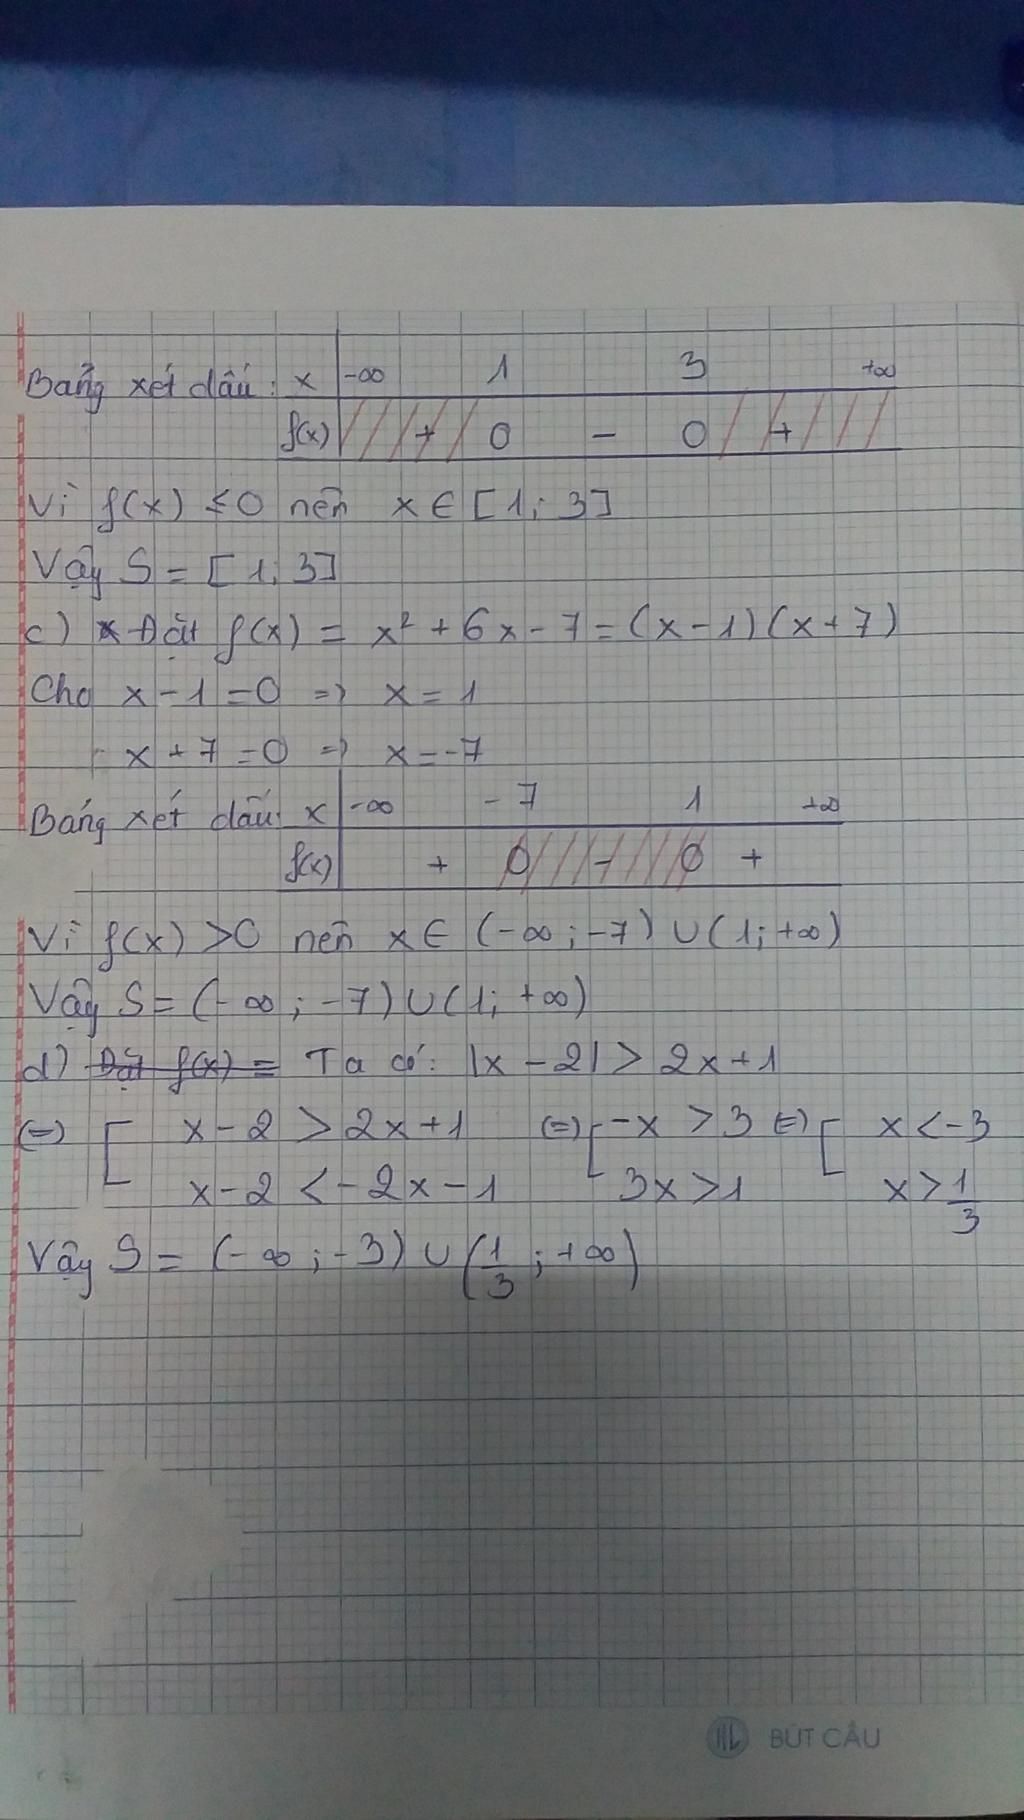 Bảng xét dấu: x | -∞ 1 3 +∞
f(x) + 0 - 0 +
Vì f(x) ≤ 0 nên x ∈ [1; 3]
Vậy S = [1; 3]
c) Đặt f(x) = x² + 6x - 7 = (x - 1)(x + 7)
Cho x - 1 = 0 => x = 1
x + 7 = 0 => x = -7
Bảng xét dấu: x | -∞ -7 1 +∞
f(x) + 0 - 0 +
Vì f(x) > 0 nên x ∈ (-∞; -7) ∪ (1; +∞)
Vậy S = (-∞; -7) ∪ (1; +∞)
d) Đặt f(x) = Ta có: |x - 2| > 2x + 1
(=) [ x - 2 > 2x + 1 (=) [ -x > 3 (=) [ x < -3
x - 2 < -2x - 1 3x > 1 x > 1/3
Vậy S = (-∞; -3) ∪ (1/3; +∞)
HL BÚT CÂU